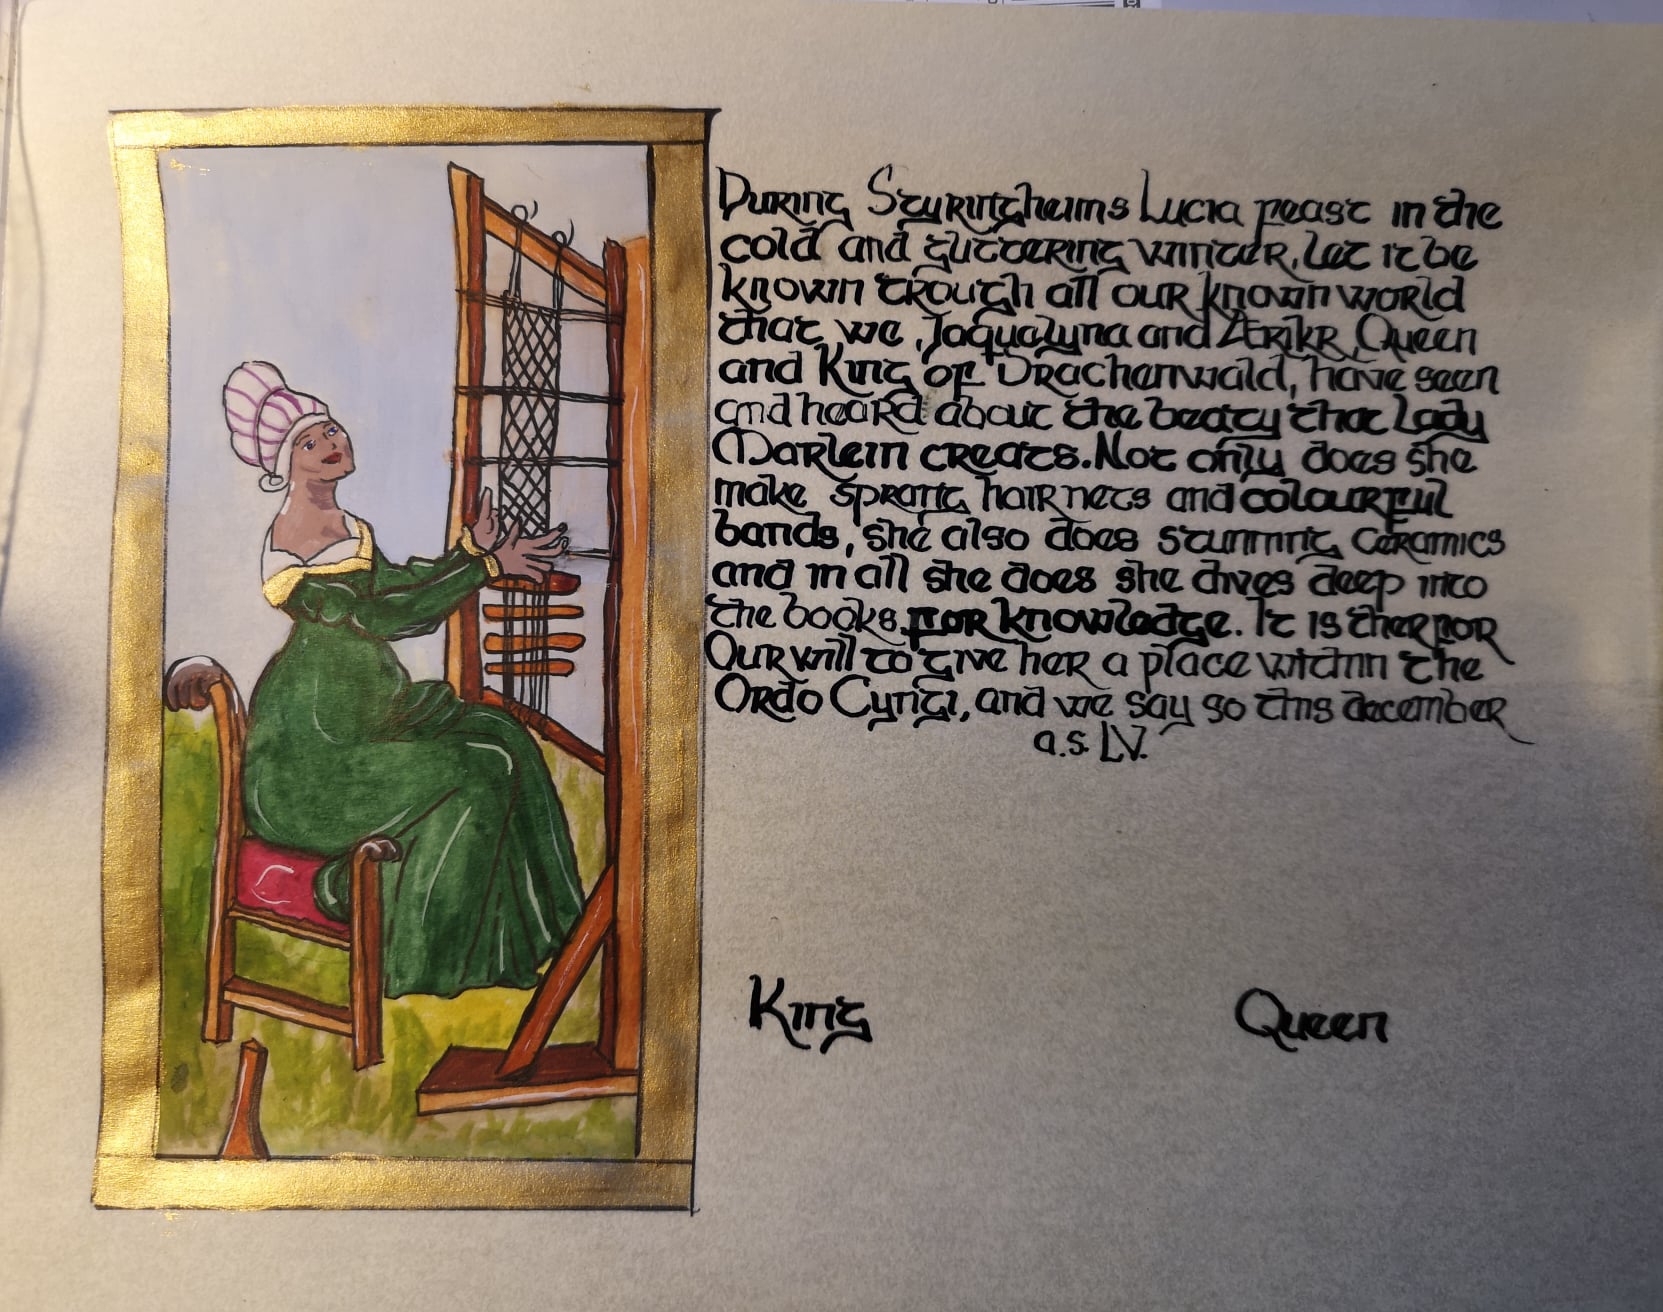 During Styringheims Lucia feast in the
cold and glittering winter, let it be
known trough all our known world
that we, Jaqualyna and Ærikr, Queen
and King of Drachenwald, have seen
and heard about the beaty that Lady
Marlein creats. Not only does she
make sprang hairnets and colourful
bands, she also does stunning ceramics
and in all she does she dives deep into
the books for knowledge. It is therfor
Our will to give her a place within the
Ordo Cyngi, and we say so this december
a.s. LV.
King Queen